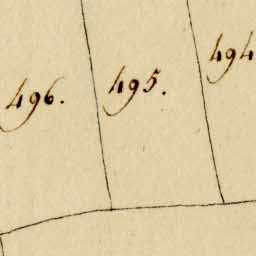 496.
495.
494